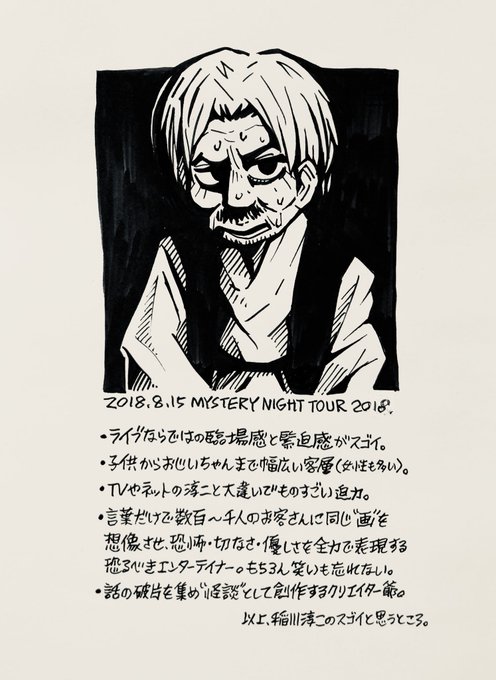 2018.8.15 MYSTERY NIGHT TOUR 2018.
・ライブならではの臨場感と緊迫感がスゴイ。
・子供からおじいちゃんまで幅広い客層(女性も多い)。
・TVやネットの淳二と大違いでものすごい迫力。
・言葉だけで数百〜千人のお客さんに同じ"画"を
想像させ、恐怖・切なさ・優しさを全力で表現する
恐るべきエンターテイナー。もちろん笑いも忘れない。
・話の破片を集め"怪談"として創作するクリエイター爺。
以上、稲川淳二のスゴイと思うところ。